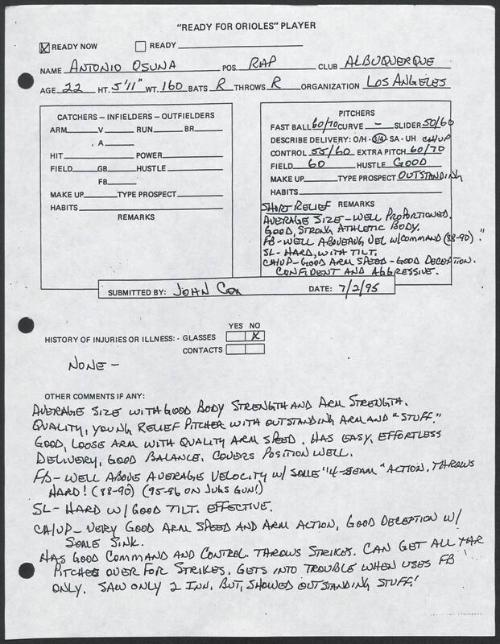 "READY FOR ORIOLES" PLAYER
☒ READY NOW ☐ READY
NAME ANTONIO OSUNA POS. RAP CLUB ALBUQUERQUE
AGE 22 HT. 5'11" WT. 160 BATS R THROWS R ORGANIZATION LOS ANGELES
CATCHERS – INFIELDERS – OUTFIELDERS
ARM V RUN BR
A
HIT POWER
FIELD GB HUSTLE
FB
MAKE UP TYPE PROSPECT
HABITS
REMARKS
PITCHERS
FAST BALL 60/70 CURVE – SLIDER 50/60
DESCRIBE DELIVERY: O/H - 3/4 - SA - UH CH/UP
CONTROL 55/60 EXTRA PITCH 60/70
FIELD 60 HUSTLE GOOD
MAKE UP TYPE PROSPECT OUTSTANDING
HABITS
SHORT RELIEF REMARKS
AVERAGE SIZE – WELL PROPORTIONED.
GOOD, STRONG ATHLETIC BODY.
FB – WELL ABOVE AVG VEL W/COMMAND (88-90).
SL – HARD, WITH TILT.
CH/UP – GOOD ARM SPEED – GOOD DECEPTION.
CONFIDENT AND AGGRESSIVE.
SUBMITTED BY: JOHN COX DATE: 7/2/95
YES NO
HISTORY OF INJURIES OR ILLNESS: - GLASSES X
CONTACTS
NONE –
OTHER COMMENTS IF ANY:
AVERAGE SIZE WITH GOOD BODY STRENGTH AND ARM STRENGTH.
QUALITY, YOUNG RELIEF PITCHER WITH OUTSTANDING ARM AND "STUFF."
GOOD, LOOSE ARM WITH QUALITY ARM SPEED. HAS EASY, EFFORTLESS
DELIVERY, GOOD BALANCE. COVERS POSITION WELL.
FB – WELL ABOVE AVERAGE VELOCITY W/ SOME "4-SEAM" ACTION. THROWS
HARD! (88-90) (95-96 ON JUGS GUN!)
SL – HARD W/ GOOD TILT. EFFECTIVE.
CH/UP – VERY GOOD ARM SPEED AND ARM ACTION, GOOD DECEPTION W/
SOME SINK.
HAS GOOD COMMAND AND CONTROL. THROWS STRIKES. CAN GET ALL
PITCHES OVER FOR STRIKES. GETS INTO TROUBLE WHEN USES FB
ONLY. SAW ONLY 2 INN. BUT, SHOWED OUTSTANDING STUFF!